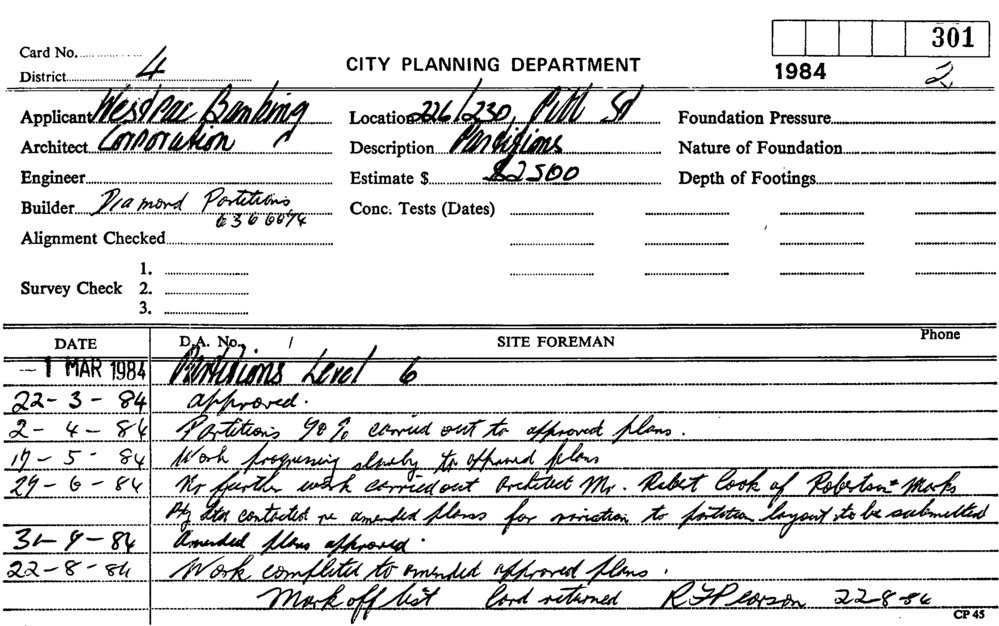 301
Card No.
CITY PLANNING DEPARTMENT
1984 2
District 4
Applicant Westpac Banking Location 226/230, Pitt St Foundation Pressure
Architect Corporation Description Partitions Nature of Foundation
Engineer Estimate $ $2500 Depth of Footings
Builder Diamond Partitions Conc. Tests (Dates)
Alignment Checked
1.
Survey Check 2.
3.
DATE D.A. No. / SITE FOREMAN Phone
- 1 MAR 1984 Partitions Level 6
22 - 3 - 84 approved.
2 - 4 - 84 Partitions 90% carried out to approved plans.
17 - 5 - 84 Work progressing slowly to approved plans
29 - 6 - 84 No further work carried out Architect Mr. Robert Cook of Robertson & Marks
contacted re amended plans for variation to partition layout to be submitted
84 Amended plans approved.
22 - 8 - 84 Work completed to amended approved plans.
Mark off list Card returned R F Pearson 22-8-84
CP 45